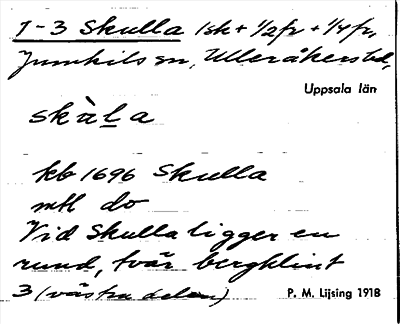 1-3 Skulla 1sk + 1/2fr + 1/4fr,
Jumkils sn, Ulleråkers hd,
Uppsala län
skàḻa
kb 1696 Skulla
mtl do
Vid Skulla ligger en
rund, tvär bergklint
3 (västra delen)
P. M. Lijsing 1918